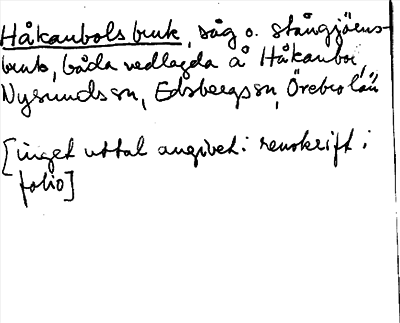 Håkanbols bruk, såg o. stångjärns-
bruk, båda nedlagda å Håkanbol,
Nysunds sn, Edsbergs sn, Örebro län
[inget uttal angivet i renskrift i
folio]